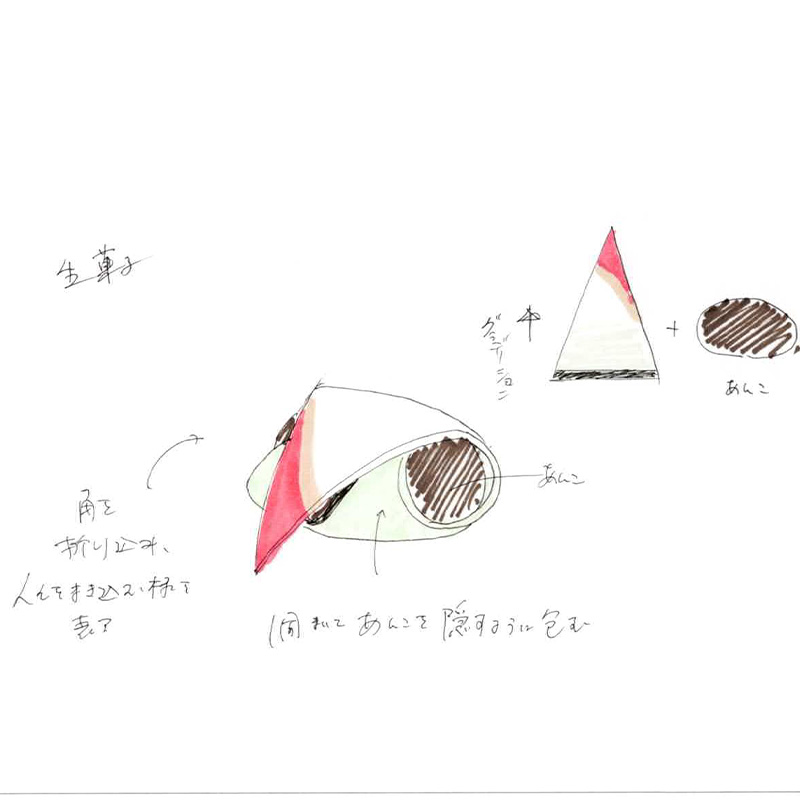 生菓子
グラデーション
+
あんこ
あんこ
角を
折り込み、
人を巻き込む様を
表す
1周まいて あんこを隠すように包む